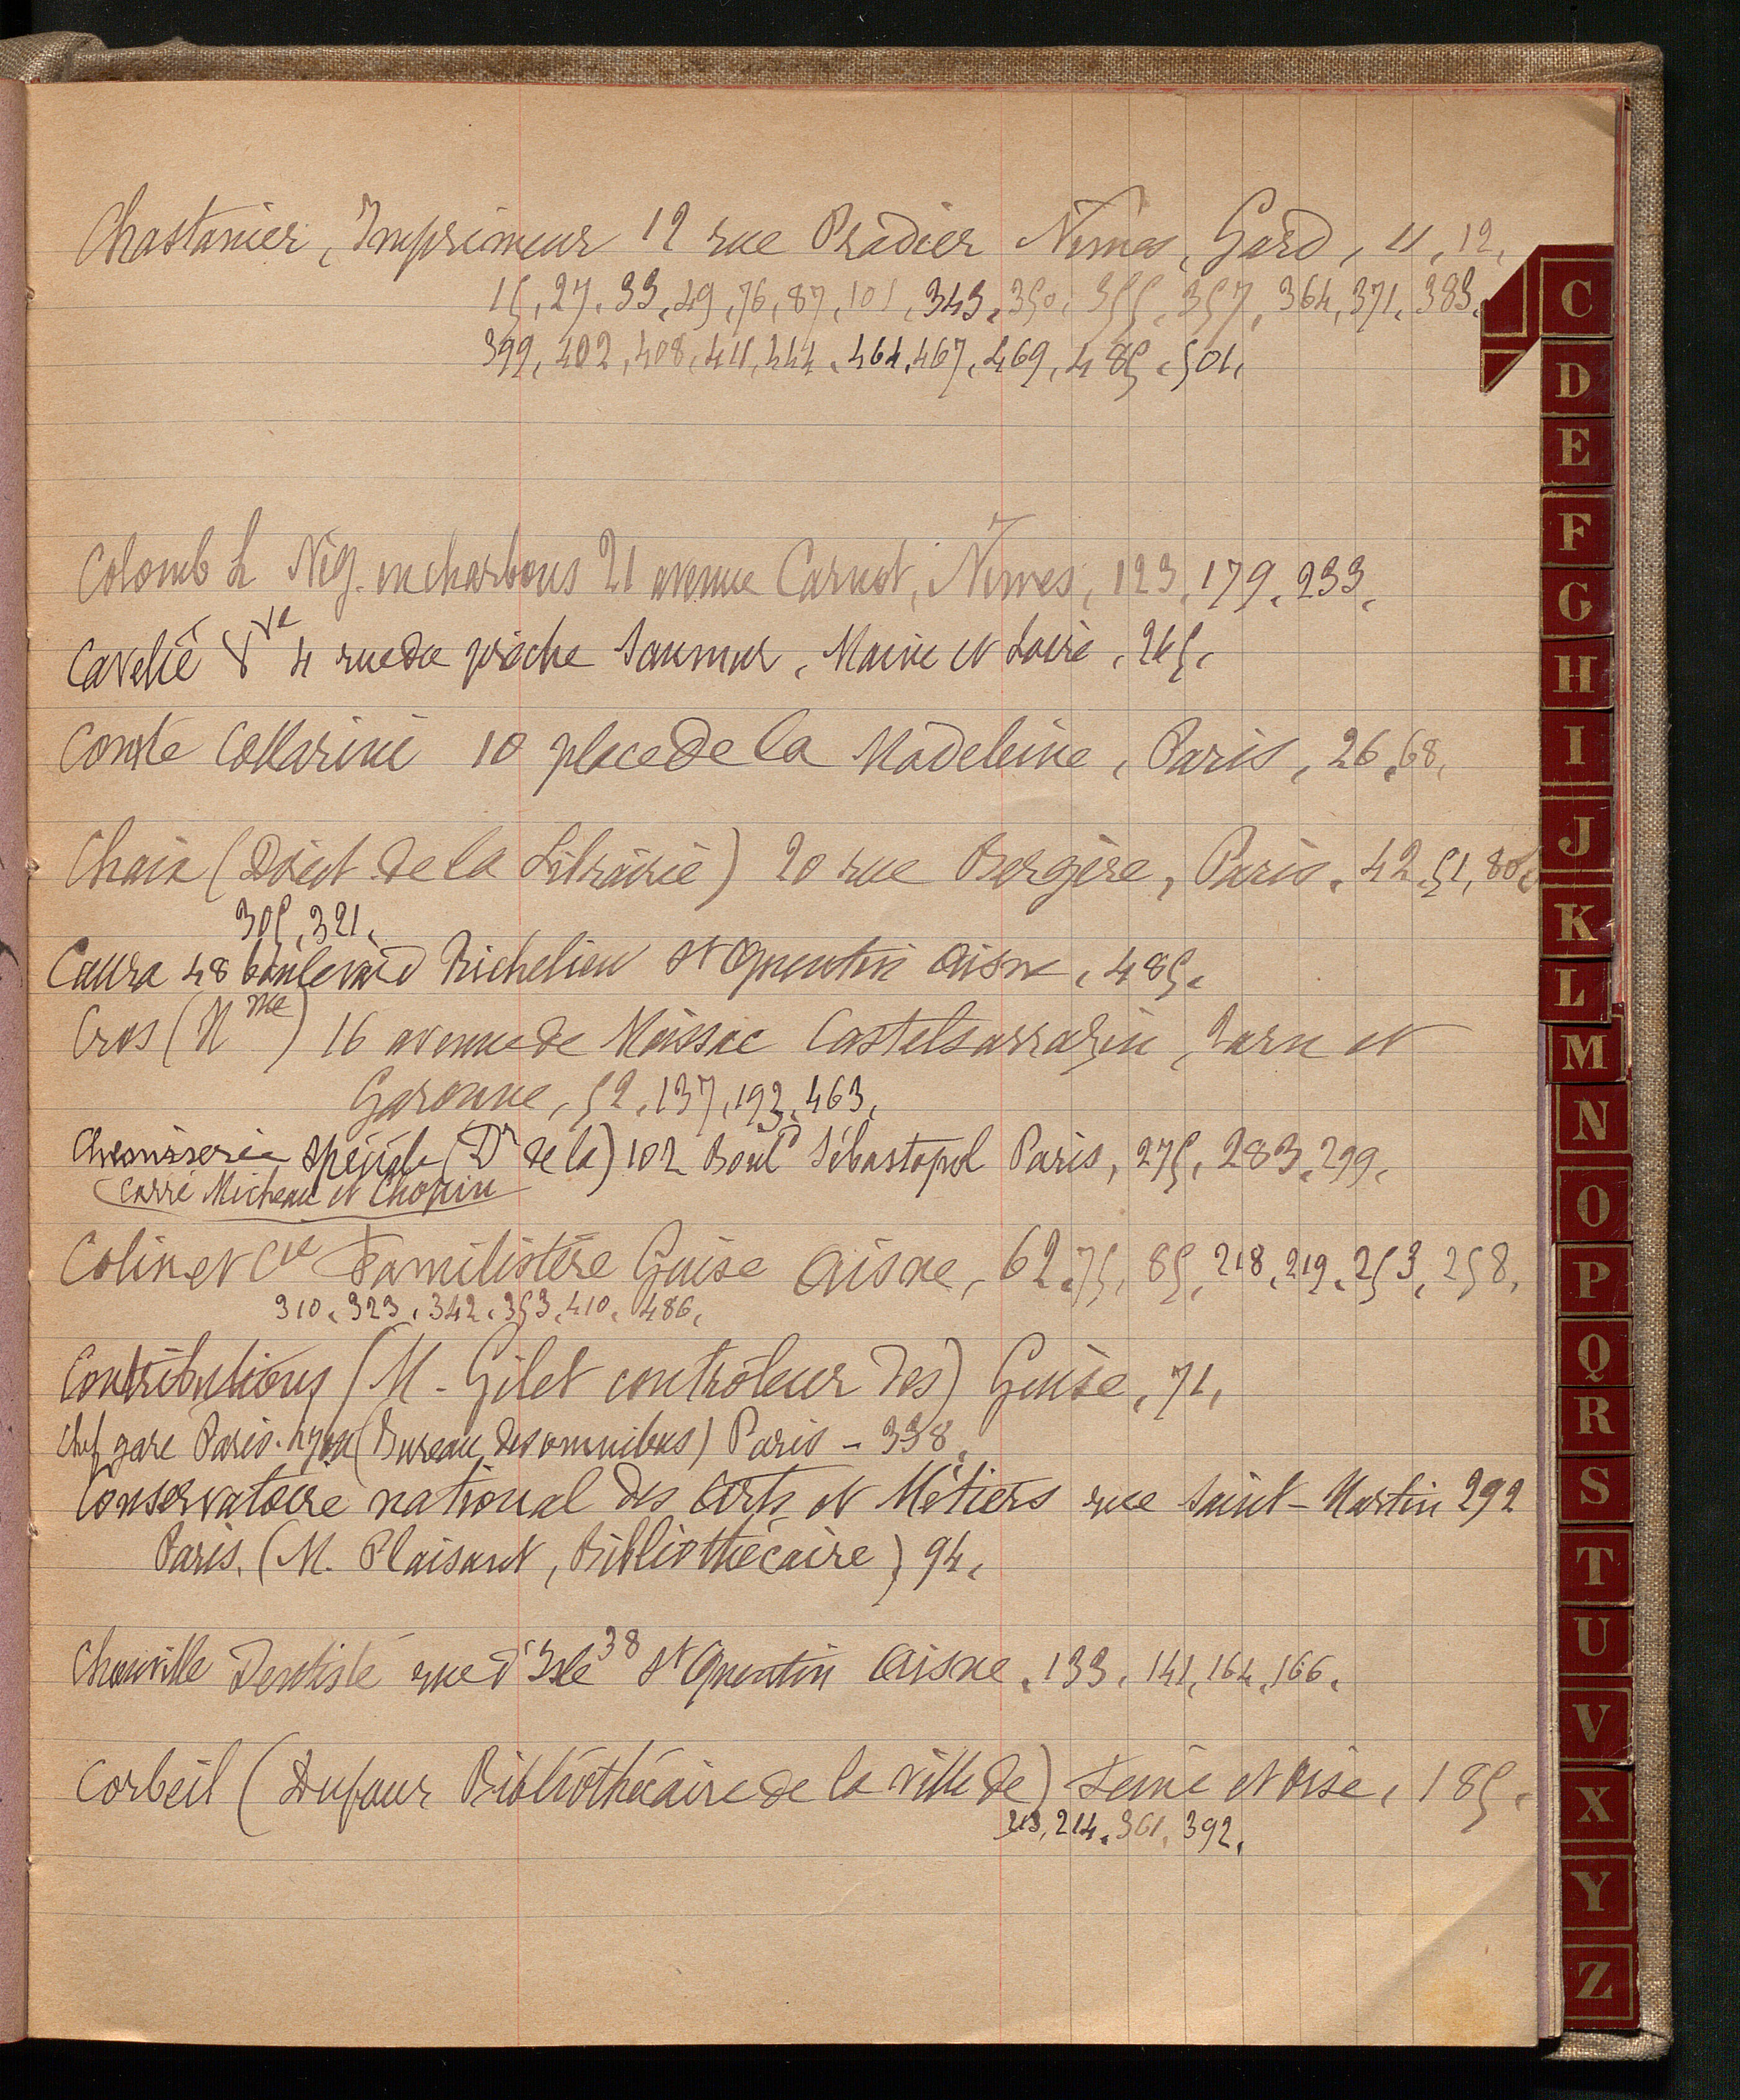 Chastanier, Imprimeur 12 rue Pradier Nîmes, Gard, 11, 12,
15, 27, 33, 49, 76, 87, 101, 343, 350, 355, 357, 364, 371, 383,
399, 402, 408, 411, 444, 464, 467, 469, 485, 501,
Colomb L Nég. en charbons 21 avenue Carnot, Nîmes, 123, 179, 233,
Cavelié Vve 4 rue du prêche Saumur, Maine et Loire, 265,
Comte 10 place de la Madeleine, Paris, 26, 68,
Chaix (Direct de la Librairie) 20 rue Bergère, Paris, 42, 51, 80,
305, 321,
Caura 48 boulevard Richelieu St Quentin Aisne, 485,
Cros (Mme) 16 avenue de Moissac Castelsarrazin, Tarn et
Garonne, 52, 137, 193, 463,
Chemiserie spéciale (Dr de la) 102 Boul'd Sébastopol Paris, 275, 283, 299,
Carré Micheau et Chopin
Colin et Cie Familistère Guise Aisne, 62, 75, 85, 218, 219, 253, 258,
310, 323, 342, 353, 410, 486,
Contributions (M. Gilet contrôleur des) Guise, 71,
Chef gare Paris-Lyon (Bureau des omnibus) Paris - 338,
Conservatoire national des Arts et Métiers rue Saint-Martin 292
Paris. (M. Plaisant, Bibliothécaire) 94,
Chouville Dentiste rue d'Isle 38 St Quentin Aisne, 133, 141, 164, 166,
Corbeil (Dufour Bibliothécaire de la ville de) Seine et Oise, 185,
213, 214, 361, 392,
C
D
E
F
G
H
I
J
K
L
M
N
O
P
Q
R
S
T
U
V
X
Y
Z